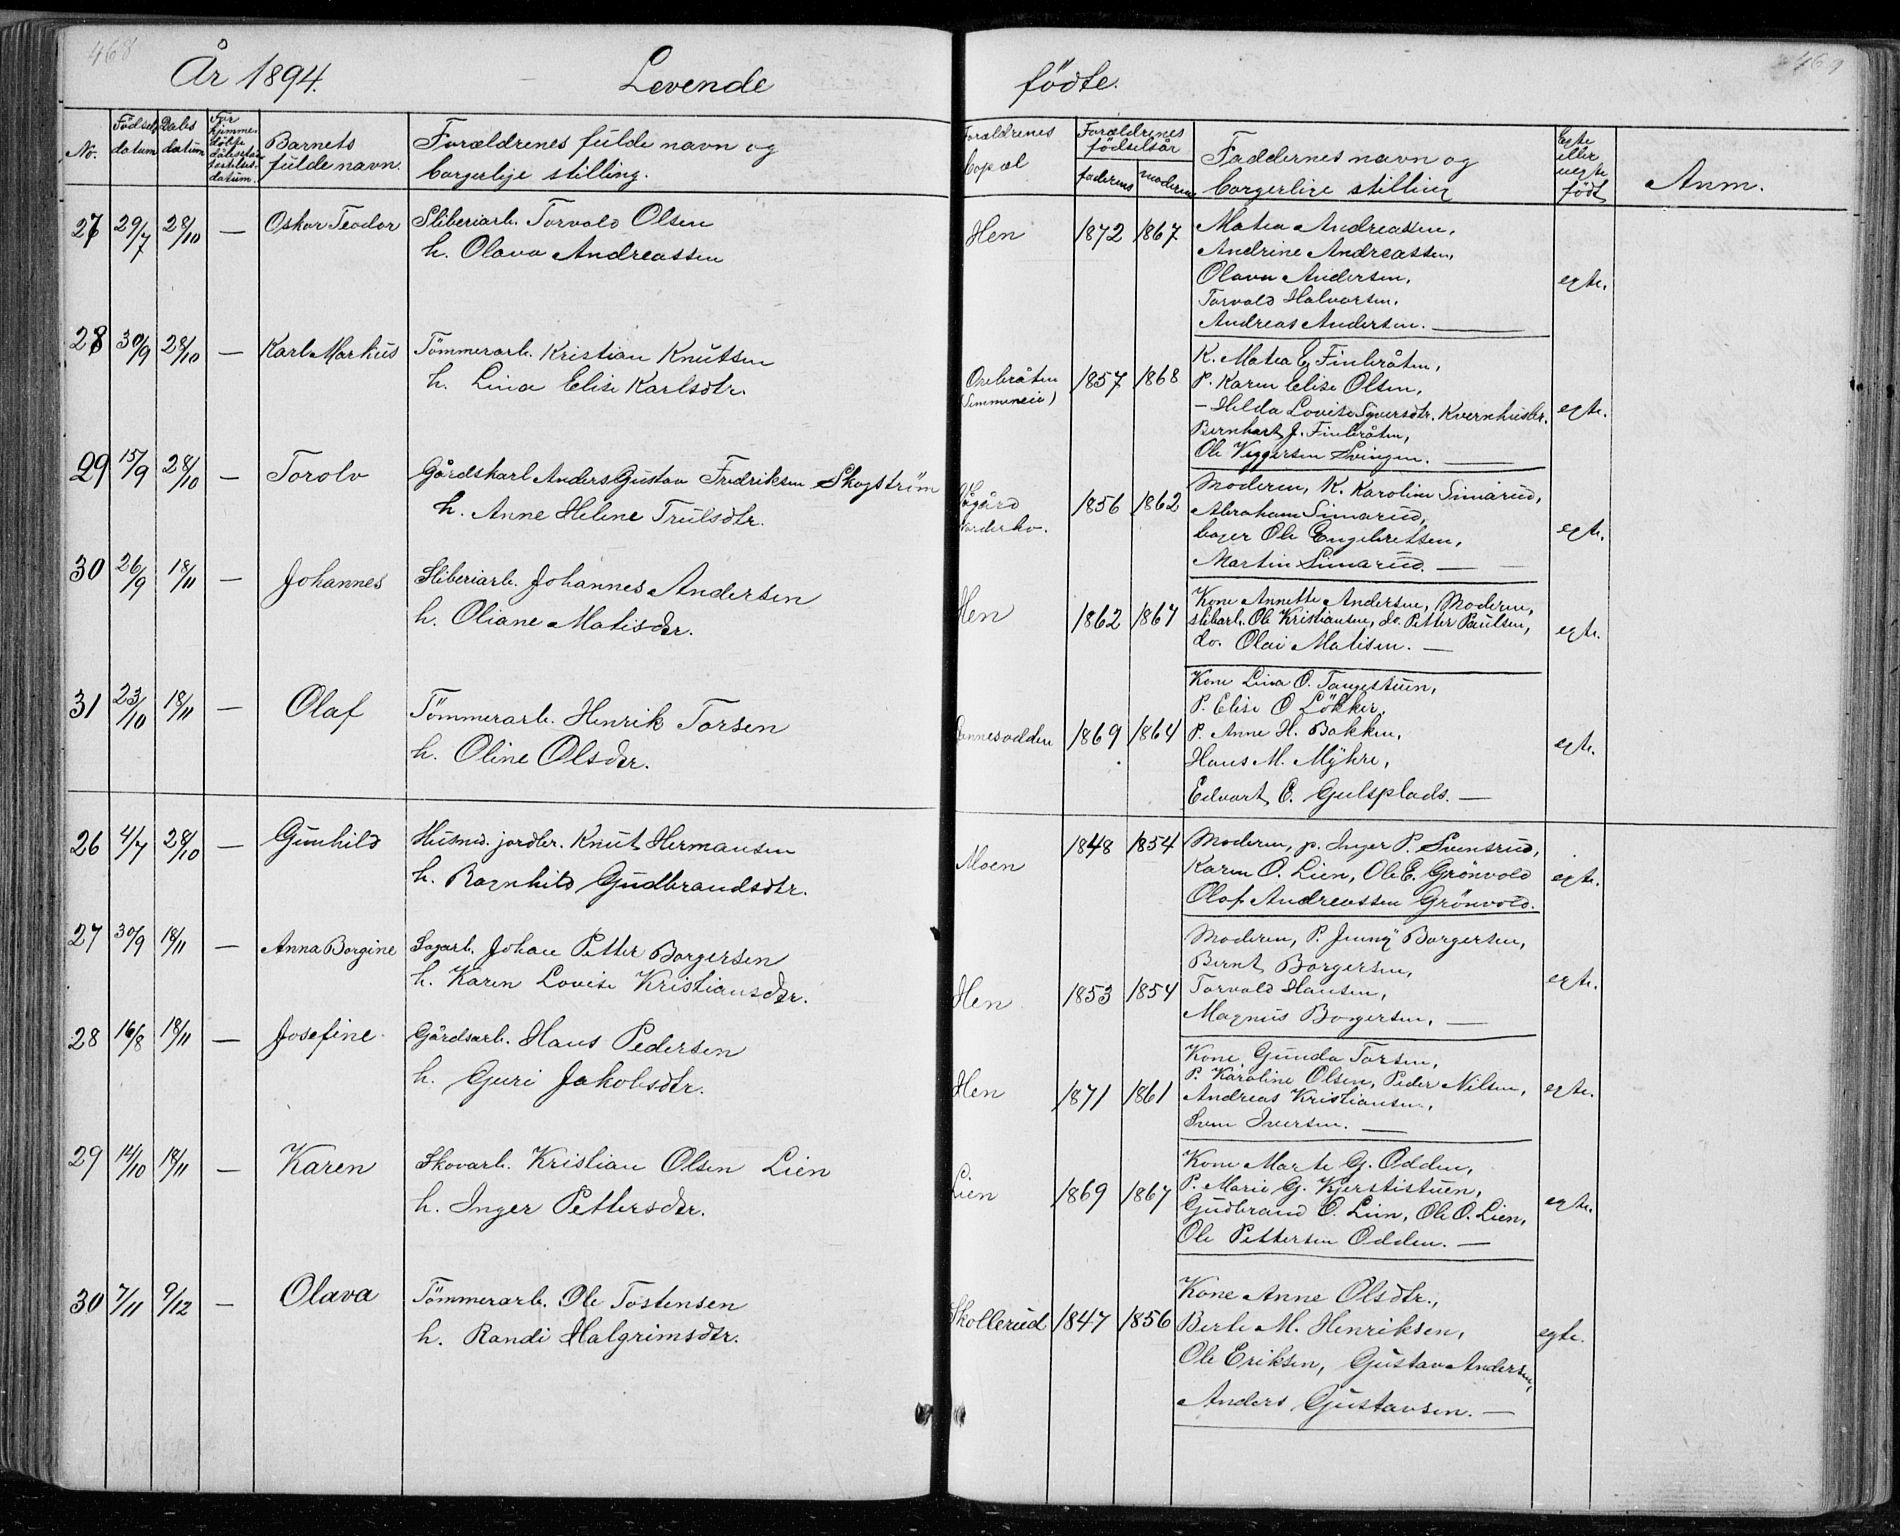 468
År 1894.
Levende
födte.
469
No.
Födsels datum
Dåbs datum
For hjemme-döbte dåbsstadfestelses-datum.
Barnets fulde navn.
Forældrenes fulde navn og borgerlige stilling.
Forældrenes bopæl
Forældrenes födselsår
faderens
moderens
Faddernes navn og borgerlige stilling
Egte eller uegte födt
Anm.
27 29/7 28/10 — Oskar Teodor Sliberiarb. Torvald Olsen
h. Olava Andreassen
Hen 1872 1867 Matea Andreassen,
Andrine Andreassen,
Olava Andersen,
Torvald Halvorsen,
Andreas Andersen. —
egte.
28 30/9 28/10 — Karl Markus Tömmerarb. Kristian Knutsen
h. Lina Elise Karlsdtr.
Onebråten
1857 1868 K. Matea E. Finbråten,
P. Karen Elise Olsen,
— Hilda Lovise Syversdtr. Kvernhusbr.
Bernhart J. Finbråten,
Ole Viggersen Svingen. —
egte.
29 15/9 28/10 — Torolv Gårdskarl Anders Gustav Fredriksen Skogström
h. Anne Helene Trulsdtr.
Norderho.
1856 1862 Moderen, K. Karoline Simarud,
Abraham Simarud,
bager Ole Engebretsen,
Martin Simarud. —
egte.
30 26/9 18/11 — Johannes Sliberiarb. Johannes Andersen
h. Oliane Matisdtr.
Hen 1862 1867 Kone Annette Andersen, Moderen,
slibarb. Ole Kristiansen, do. Petter Paulsen,
do. Olai Matisen. —
egte.
31 23/10 18/11 — Olaf Tömmerarb. Henrik Torsen
h. Oline Olsdtr.
1869 1864 Kone Lina O. Tangestuen,
P. Elise O Lökker,
P. Anne H. Bakken,
Hans M. Myhre,
Edvart E. Gulsplads. —
egte.
26 4/7 28/10 — Gunhild Husmd. jordbr. Knut Hermansen
h. Ragnhild Gudbrandsdtr.
Moen 1848 1854 Moderen, p. Inger P. Svensrud,
Karen O. Lien, Ole E. Grönvold
Olaf Andreassen Grönvold.
egte.
27 30/9 18/11 — Anna Borgine Sagarb. Johan Petter Borgersen
h. Karen Lovise Kristiansdtr.
Hen 1853 1854 Moderen, P. Jenny Borgersen,
Bernt Borgersen,
Torvald Hansen,
Magnus Borgersen, —
egte.
28 16/8 18/11 — Josefine Gårdsarb. Hans Pedersen
h. Guri Jakobsdtr.
Hen 1871 1861 Kone Gunda Torsen,
P. Karoline Olsen, Peder Nilsen,
Andreas Kristiansen,
Sven Iversen. —
egte.
29 12/10 18/11 — Karen Skovarb. Kristian Olsen Lien
h. Inger Pettersdtr.
Lien 1869 1867 Kone Marte G. Odden,
P. Marie G. Kjerstistuen,
Gudbrand O. Lien, Ole O. Lien,
Ole Pettersen Odden. —
egte.
30 7/11 9/12 — Olava Tömmerarb. Ole Tostensen
h. Randi Halgrimsdtr.
Skollerud 1847 1856 Kone Anne Olsdtr.,
Berte M. Henriksen,
Ole Eriksen, Gustav Andersen,
Anders Gustavsen. —
egte.